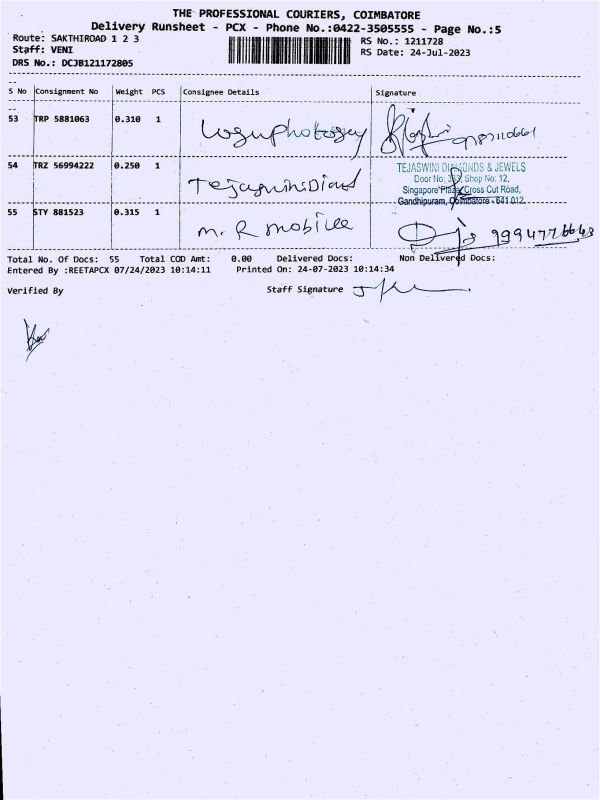 THE PROFESSIONAL COURIERS, COIMBATORE
Delivery Runsheet - PCX - Phone No.:0422-3505555 - Page No.:5
Route: SAKTHIROAD 1 2 3
RS No.: 1211728
Staff: VENI
RS Date: 24-Jul-2023
DRS No.: DCJB121172805
S No Consignment No Weight PCS Consignee Details Signature
53 TRP 5881063 0.310 1
54 TRZ 56994222 0.250 1 Tejaswini Diaud
TEJASWINI DIAMONDS & JEWELS
Door No: 313, Shop No: 12,
Singapore Plaza, Cross Cut Road,
Gandhipuram, Coimbatore - 641 012.
55 STY 881523 0.315 1 M.R mobilee
Total No. Of Docs: 55 Total COD Amt: 0.00 Delivered Docs: Non Delivered Docs:
Entered By :REETAPCX 07/24/2023 10:14:11 Printed On: 24-07-2023 10:14:34
Verified By Staff Signature